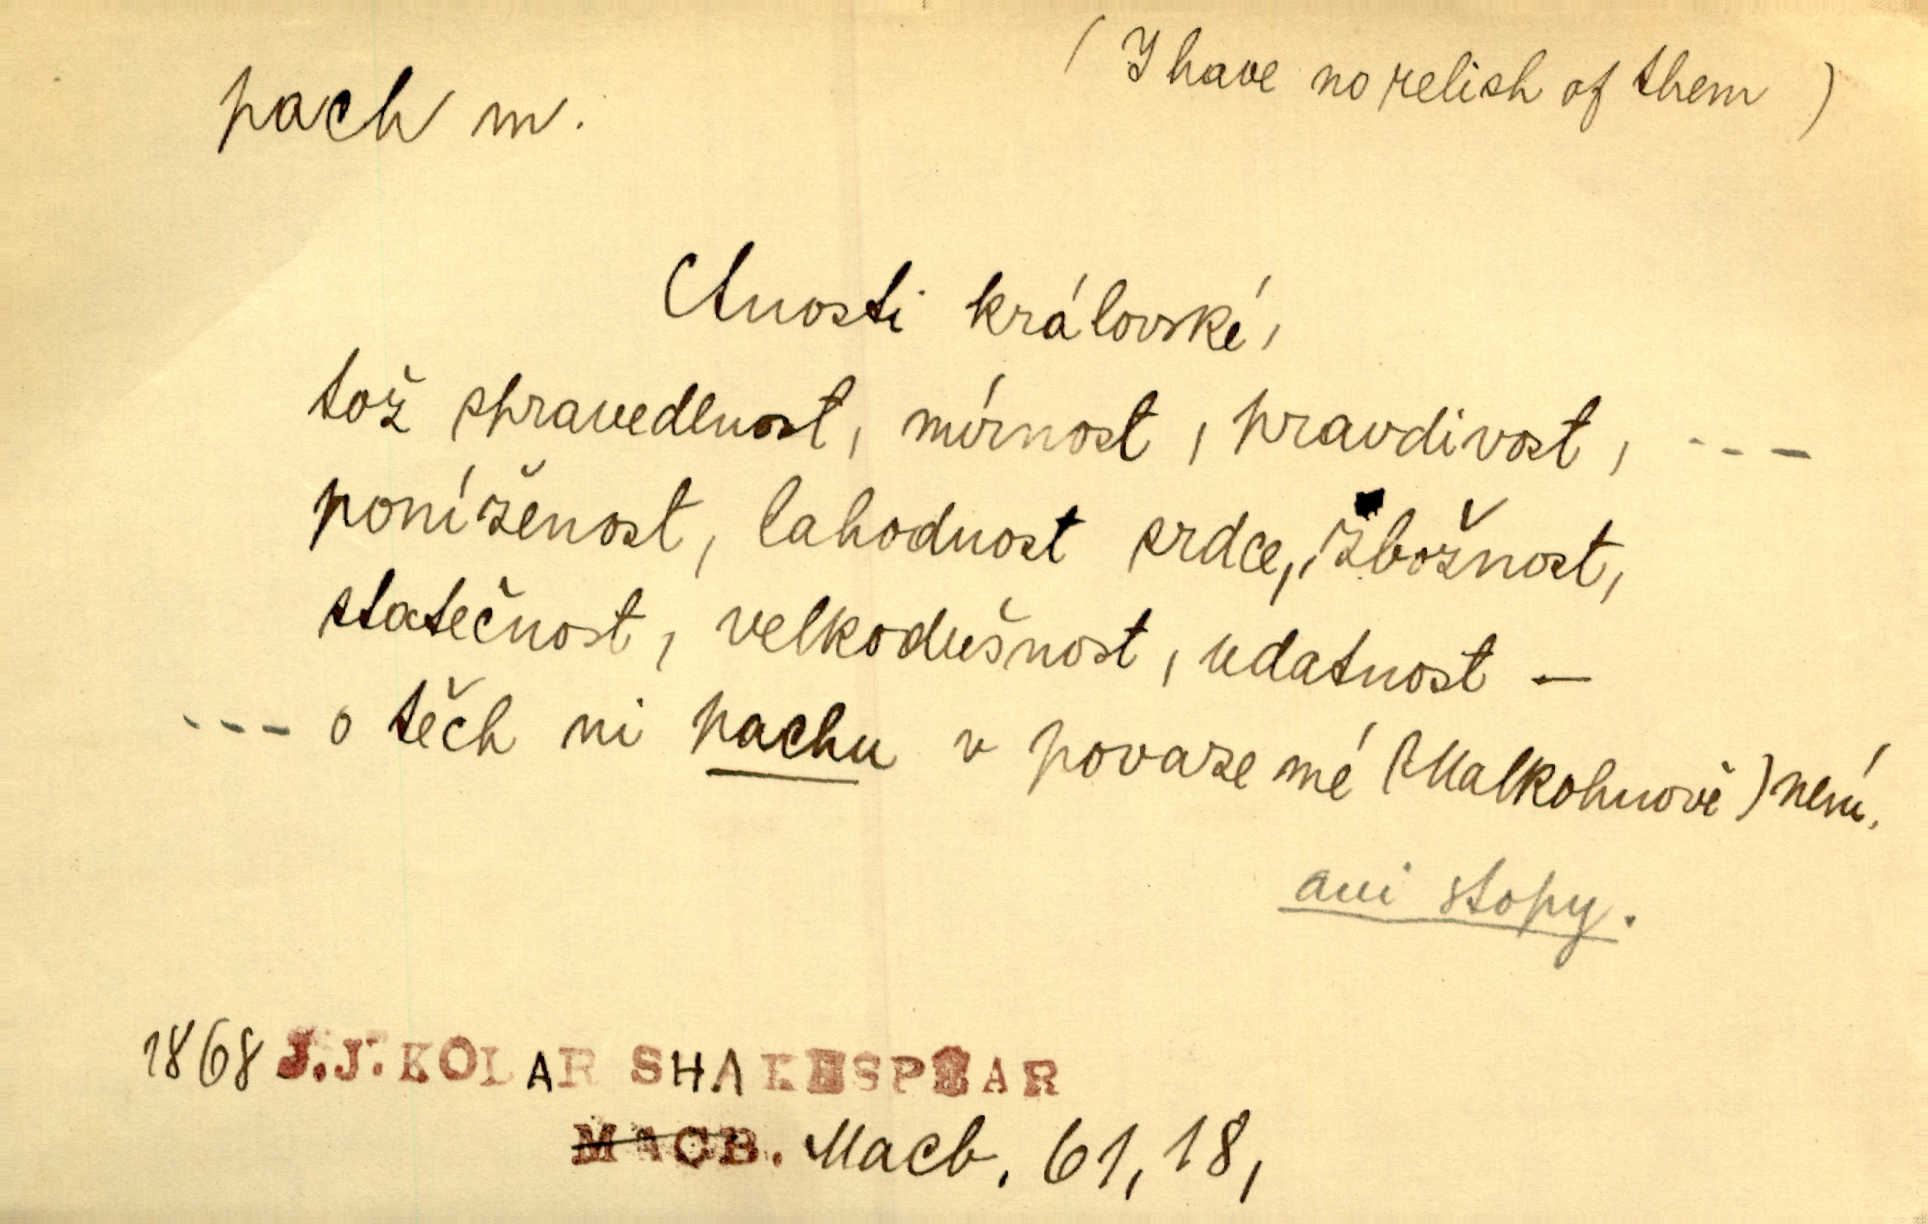 pach m.
( I have no relish of them )
Ctnosti královské,
tož spravedlnost, mírnost, pravdivost, ---
poníženost, lahodnost srdce, zbožnost,
statečnost, velkodušnost, udatnost —
--- o těch ni pachu v povaze mé (Malkohnově) není.
ani stopy.
1868 J.J.KOLAR SHAKESPEAR
MACB. Macb. 61, 18,